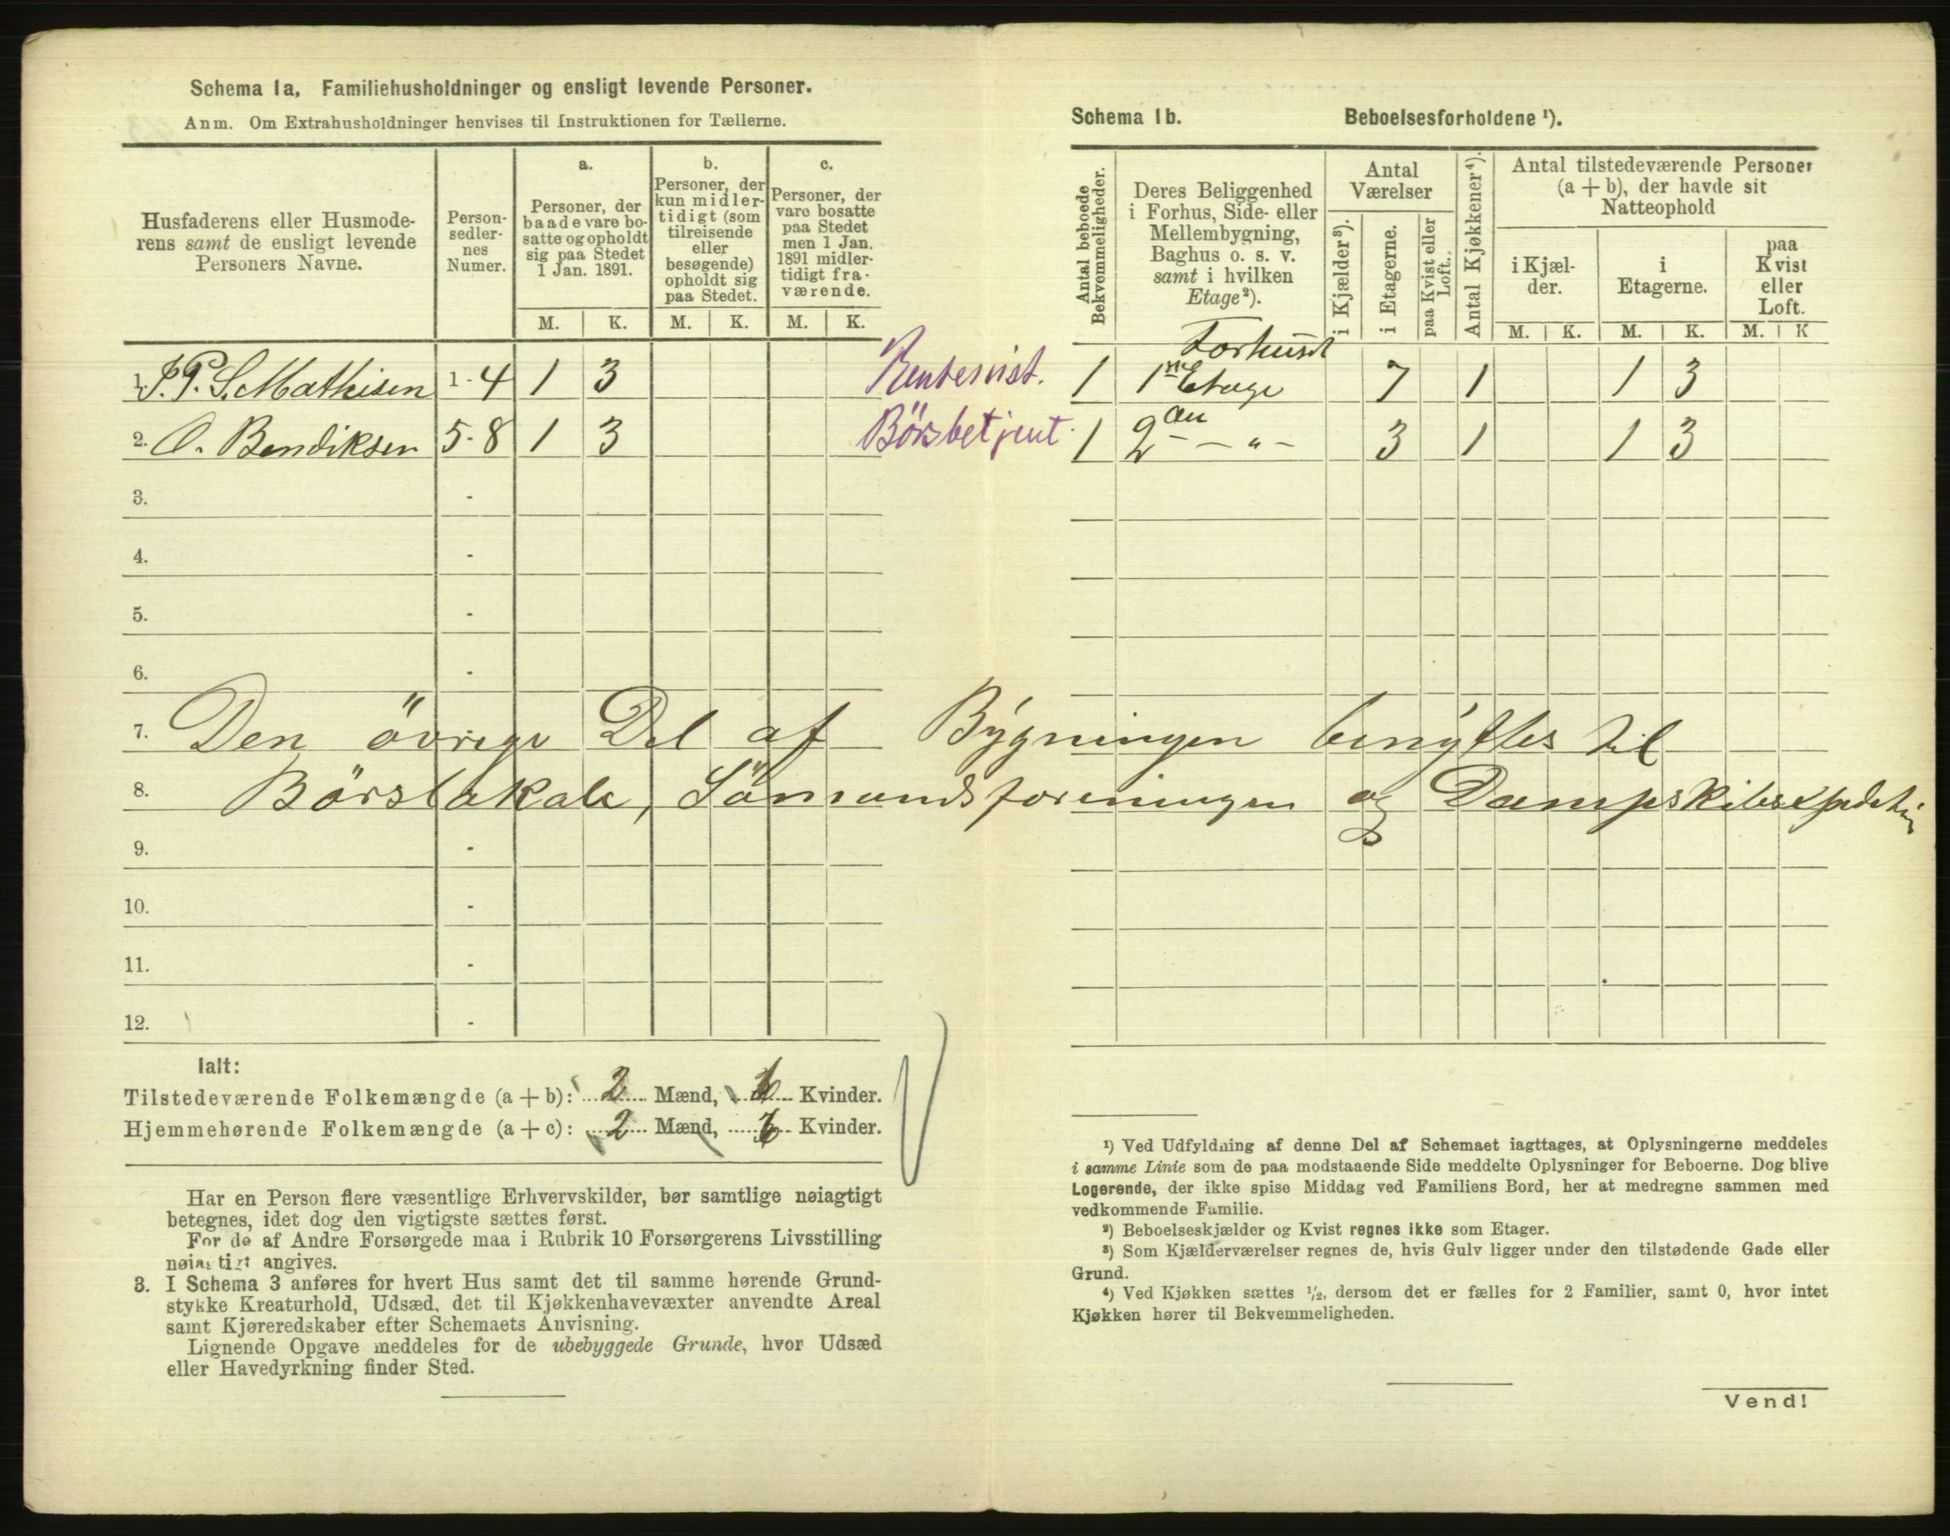 Schema 1a, Familiehusholdninger og ensligt levende Personer.
Anm. Om Extrahusholdninger henvises til Instruktionen for Tællerne.
Husfaderens eller Husmode-
rens samt de ensligt levende
Personers Navne.
Person-
sedler-
nes
Numer.
a.
Personer, der
baade vare bo-
satte og opholdt
sig paa Stedet
1 Jan. 1891.
b.
Personer, der
kun midler-
tidigt (som
tilreisende
eller
besøgende)
opholdt sig
paa Stedet.
c.
Personer, der
vare bosatte
paa Stedet
men 1 Jan.
1891 midler-
tidigt fra-
værende.
M. K. M. K. M. K.
1. J. P. S. Mathisen 1-4 1 3 Rentenist.
2. O. Bendiksen 5-8 1 3 Börsbetjent.
3. -
4. -
5. -
6. -
7. Den övrige Del af Bygningen benyttes til
8. Börslokale, Sömandsforeningen og Dampskibsexpedition
9. -
10. -
11. -
12. -
Ialt:
Tilstedeværende Folkemængde (a + b): 2 Mænd, 6 Kvinder.
Hjemmehørende Folkemængde (a + c): 2 Mænd, 6 Kvinder.
Har en Person flere væsentlige Erhvervskilder, bør samtlige nøiagtigt
betegnes, idet dog den vigtigste sættes først.
For de af Andre Forsørgede maa i Rubrik 10 Forsørgerens Livsstilling
nøiagtigt angives.
3. I Schema 3 anføres for hvert Hus samt det til samme hørende Grund-
stykke Kreaturhold, Udsæd, det til Kjøkkenhavevæxter anvendte Areal
samt Kjøreredskaber efter Schemaets Anvisning.
Lignende Opgave meddeles for de ubebyggede Grunde, hvor Udsæd
eller Havedyrkning finder Sted.
Schema 1b. Beboelsesforholdene ¹).
Antal beboede
Bekvemmeligheder.
Deres Beliggenhed
i Forhus, Side- eller
Mellembygning,
Baghus o. s. v.
samt i hvilken
Etage²).
Antal
Værelser
i Kjælder³).
i Etagerne.
paa Kvist eller
Loft.
Antal Kjøkkener⁴).
Antal tilstedeværende Personer
(a + b), der havde sit
Natteophold
i Kjæl-
der.
i
Etagerne.
paa
Kvist
eller
Loft.
M. K. M. K. M. K
Forhuset
1 1ne Etage 7 1 1 3
1 2den — „ — 3 1 1 3
¹) Ved Udfyldning af denne Del af Schemaet iagttages, at Oplysningerne meddeles
i samme Linie som de paa modstaaende Side meddelte Oplysninger for Beboerne. Dog blive
Logerende, der ikke spise Middag ved Familiens Bord, her at medregne sammen med
vedkommende Familie.
²) Beboelseskjælder og Kvist regnes ikke som Etager.
³) Som Kjælderværelser regnes de, hvis Gulv ligger under den tilstødende Gade eller
Grund.
⁴) Ved Kjøkken sættes ½, dersom det er fælles for 2 Familier, samt 0, hvor intet
Kjøkken hører til Bekvemmeligheden.
Vend!